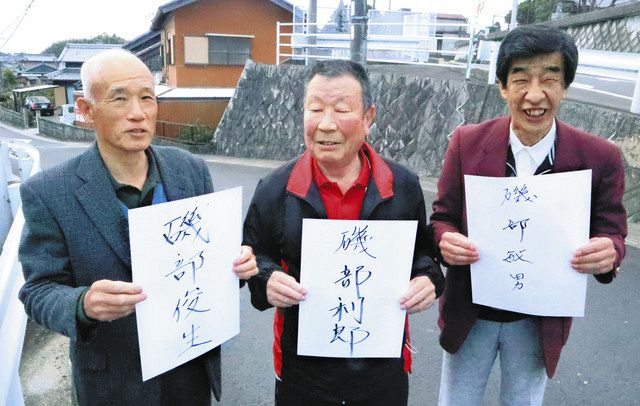 磯部俊生
磯部利郎
磯部敏男